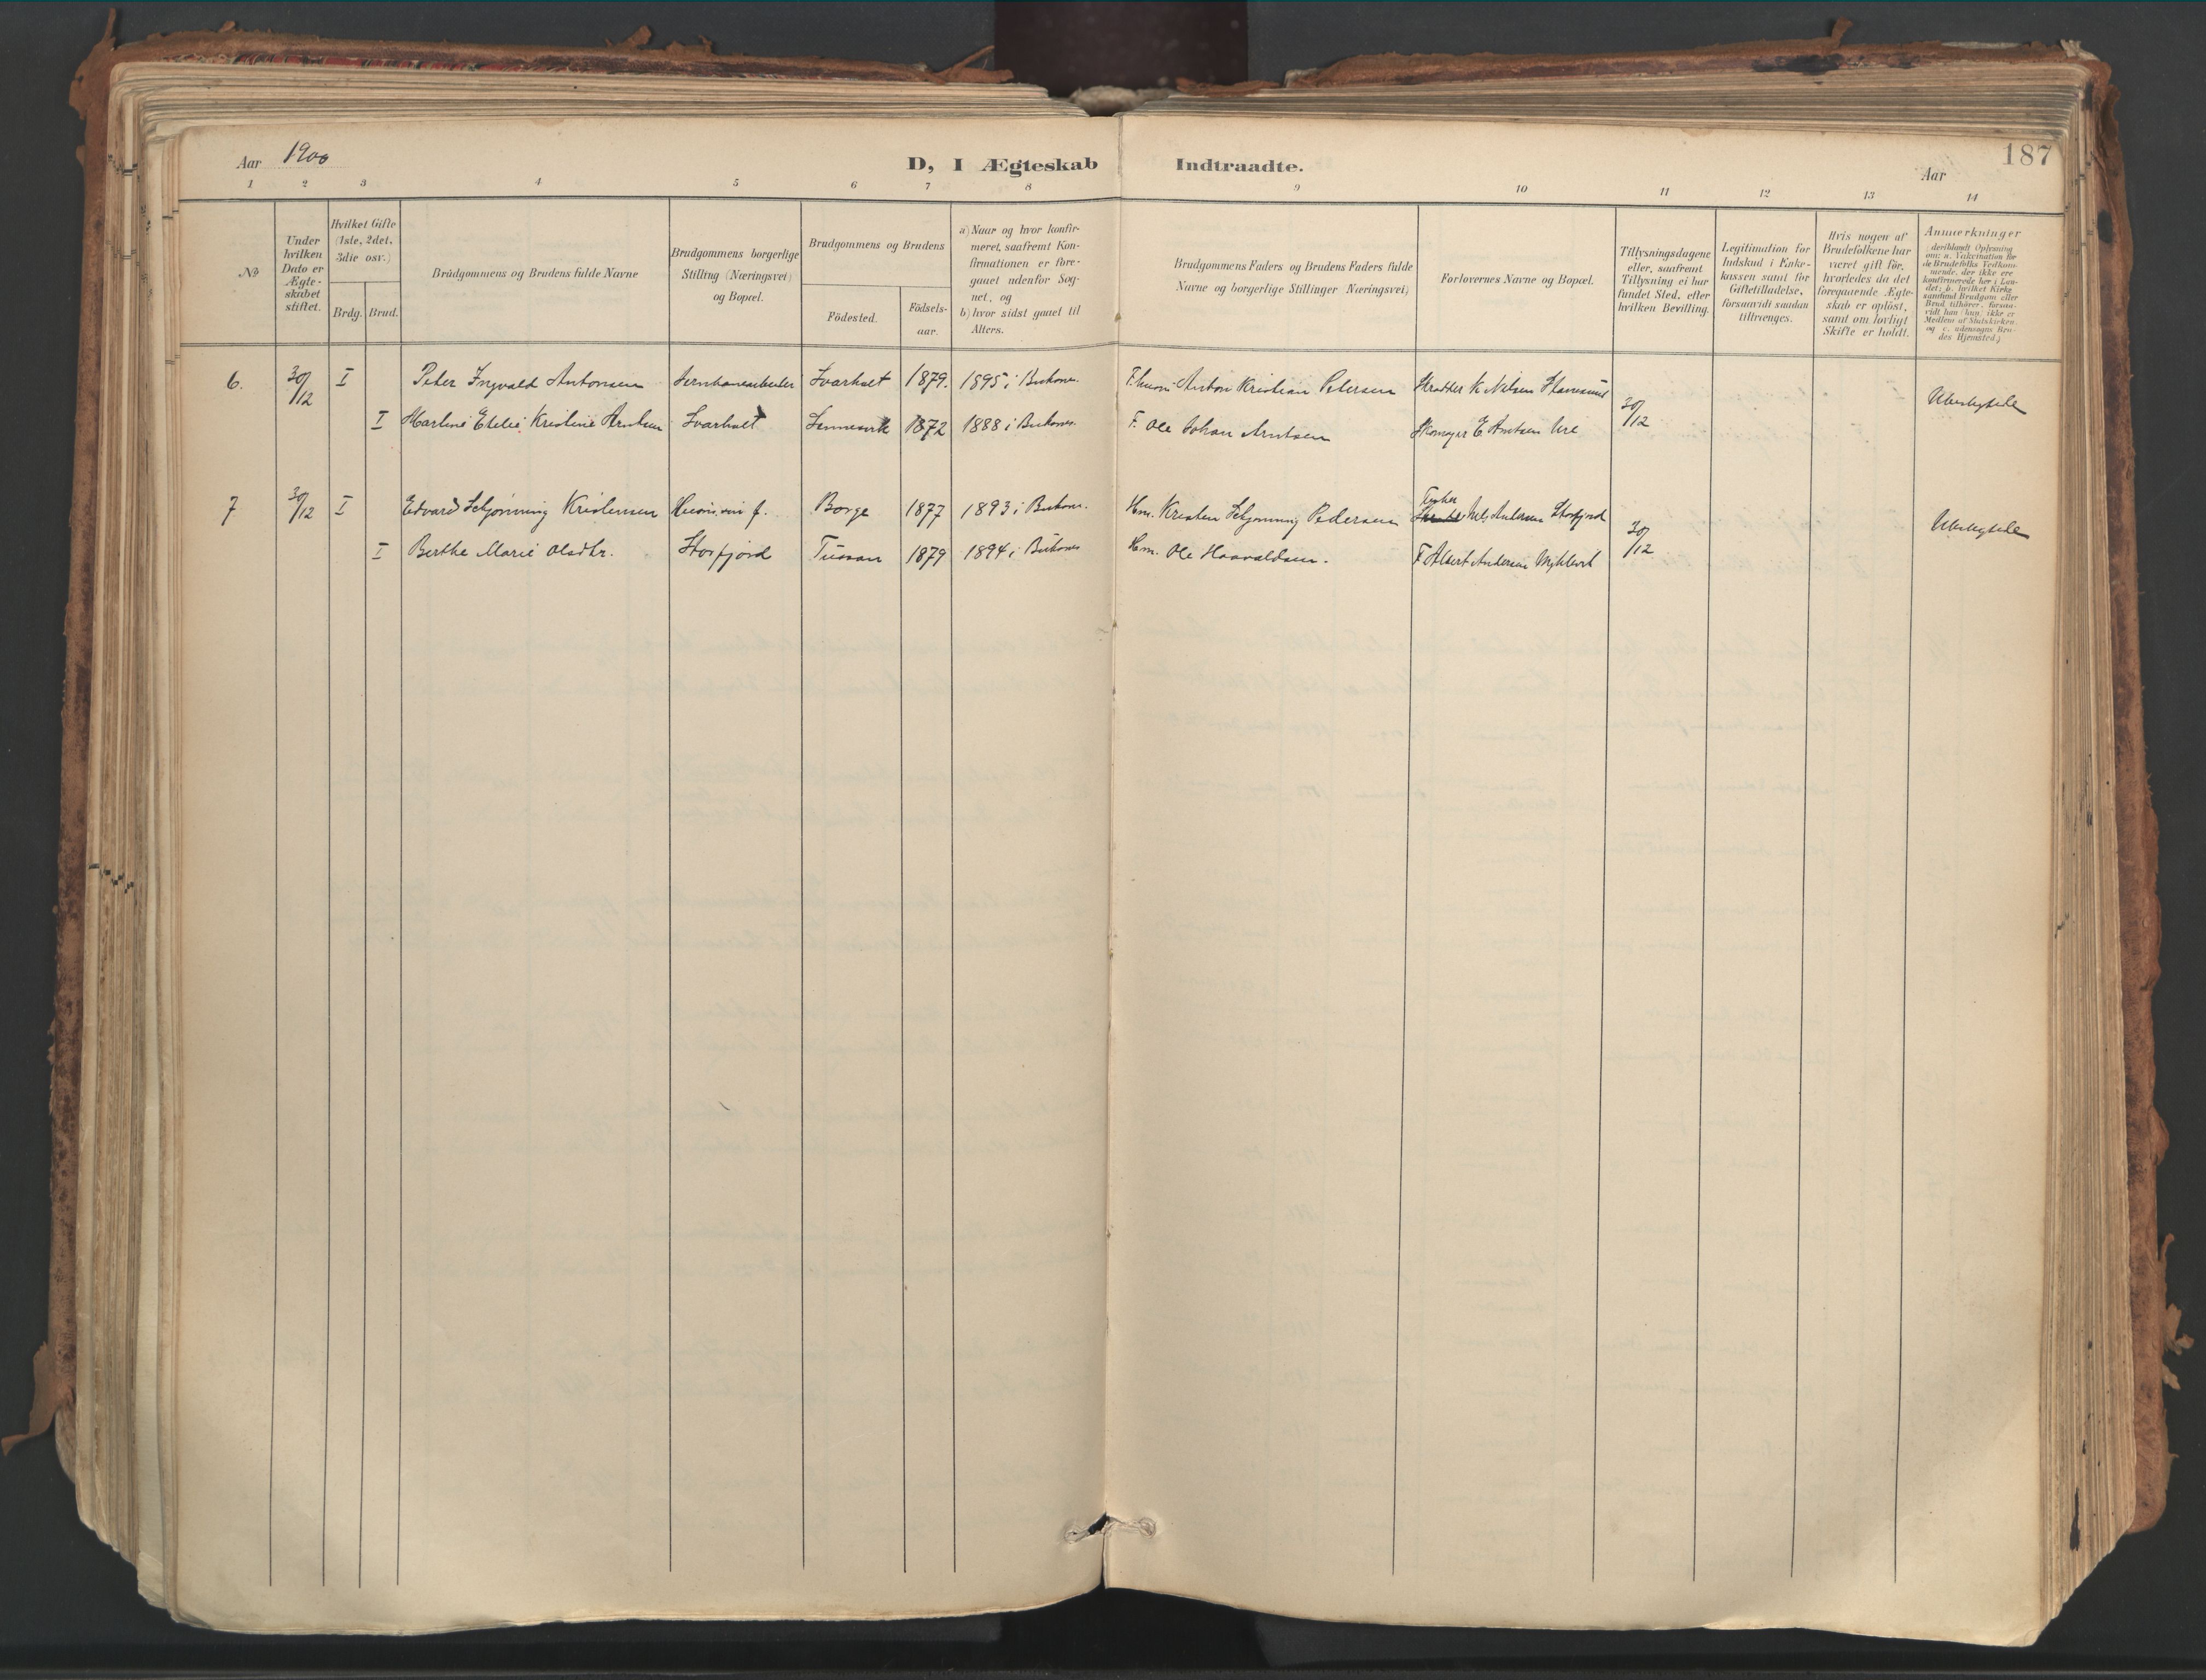 187
Aar 1900
D, I Ægteskab Indtraadte.
Aar
1 2 3 4 5 6 7 8 9 10 11 12 13 14
No
Under hvilken Dato er Ægteskabet stiftet.
Hvilket Gifte (1ste, 2det, 3die osv.)
Brdg. Brud.
Brudgommens og Brudens fulde Navne
Brudgommens borgerlige Stilling (Næringsvei) og Bopæl.
Brudgommens og Brudens
Födested.
Födsels-aar.
a) Naar og hvor konfir-
meret, saafremt Kon-
firmationen er fore-
gaaet udenfor Sog-
net, og
b) hvor sidst gaaet til
Alters.
Brudgommens Faders og Brudens Faders fulde
Navne og borgerlige Stillinger Næringsvei)
Forlovernes Navne og Bopæl.
Tillysningsdagene
eller, saafremt
Tillysning ei har
fundet Sted, efter
hvilken Bevilling.
Legitimation for
Indskud i Enke-
kassen samt for
Giftetilladelse,
forsaavidt saadan
tiltrænges.
Hvis nogen af
Brudefolkene har
været gift för,
hvorledes da det
foregaaende Ægte-
skab er oplöst,
samt om lovligt
Skifte er holdt.
Anmærkninger
(deriblandt Oplysning
om: a. Vakcination for
de Brudefolks Vedkom-
mende, der ikke ere
konfirmerede her i Lan-
det; b. hvilket Kirke-
samfund Brudgom eller
Brud tilhører, forsaa-
vidt han (hun) ikke er
Medlem af Statskirken,
og c. udensogns Bru-
des Hjemsted.)
6. 30/12 I Peter Ingvald Antonsen Svarholt 1879. 1895 i Buksnes. Anton Kristian Pedersen K. Nilsen 30/12 Ubeslægtede
I Martine Etelie Kristine Arntsen Svarholt 1872 1888 i Buksnes. F. Ole Johan Arntsen Skomager E Arntsen Ure
7 30/12 I Edvard Schjønning Kristensen f. Borge 1877 1893 i Buksn. Hm. Kristen Schjønning Pedersen Fisker Nils Andersen Storfjord 30/12 Ubeslægtede
I Berthe Marie Olsdtr. Storfjord 1879 1894 i Buksnes Hm. Ole Haavaldsen. F Albert Andersen